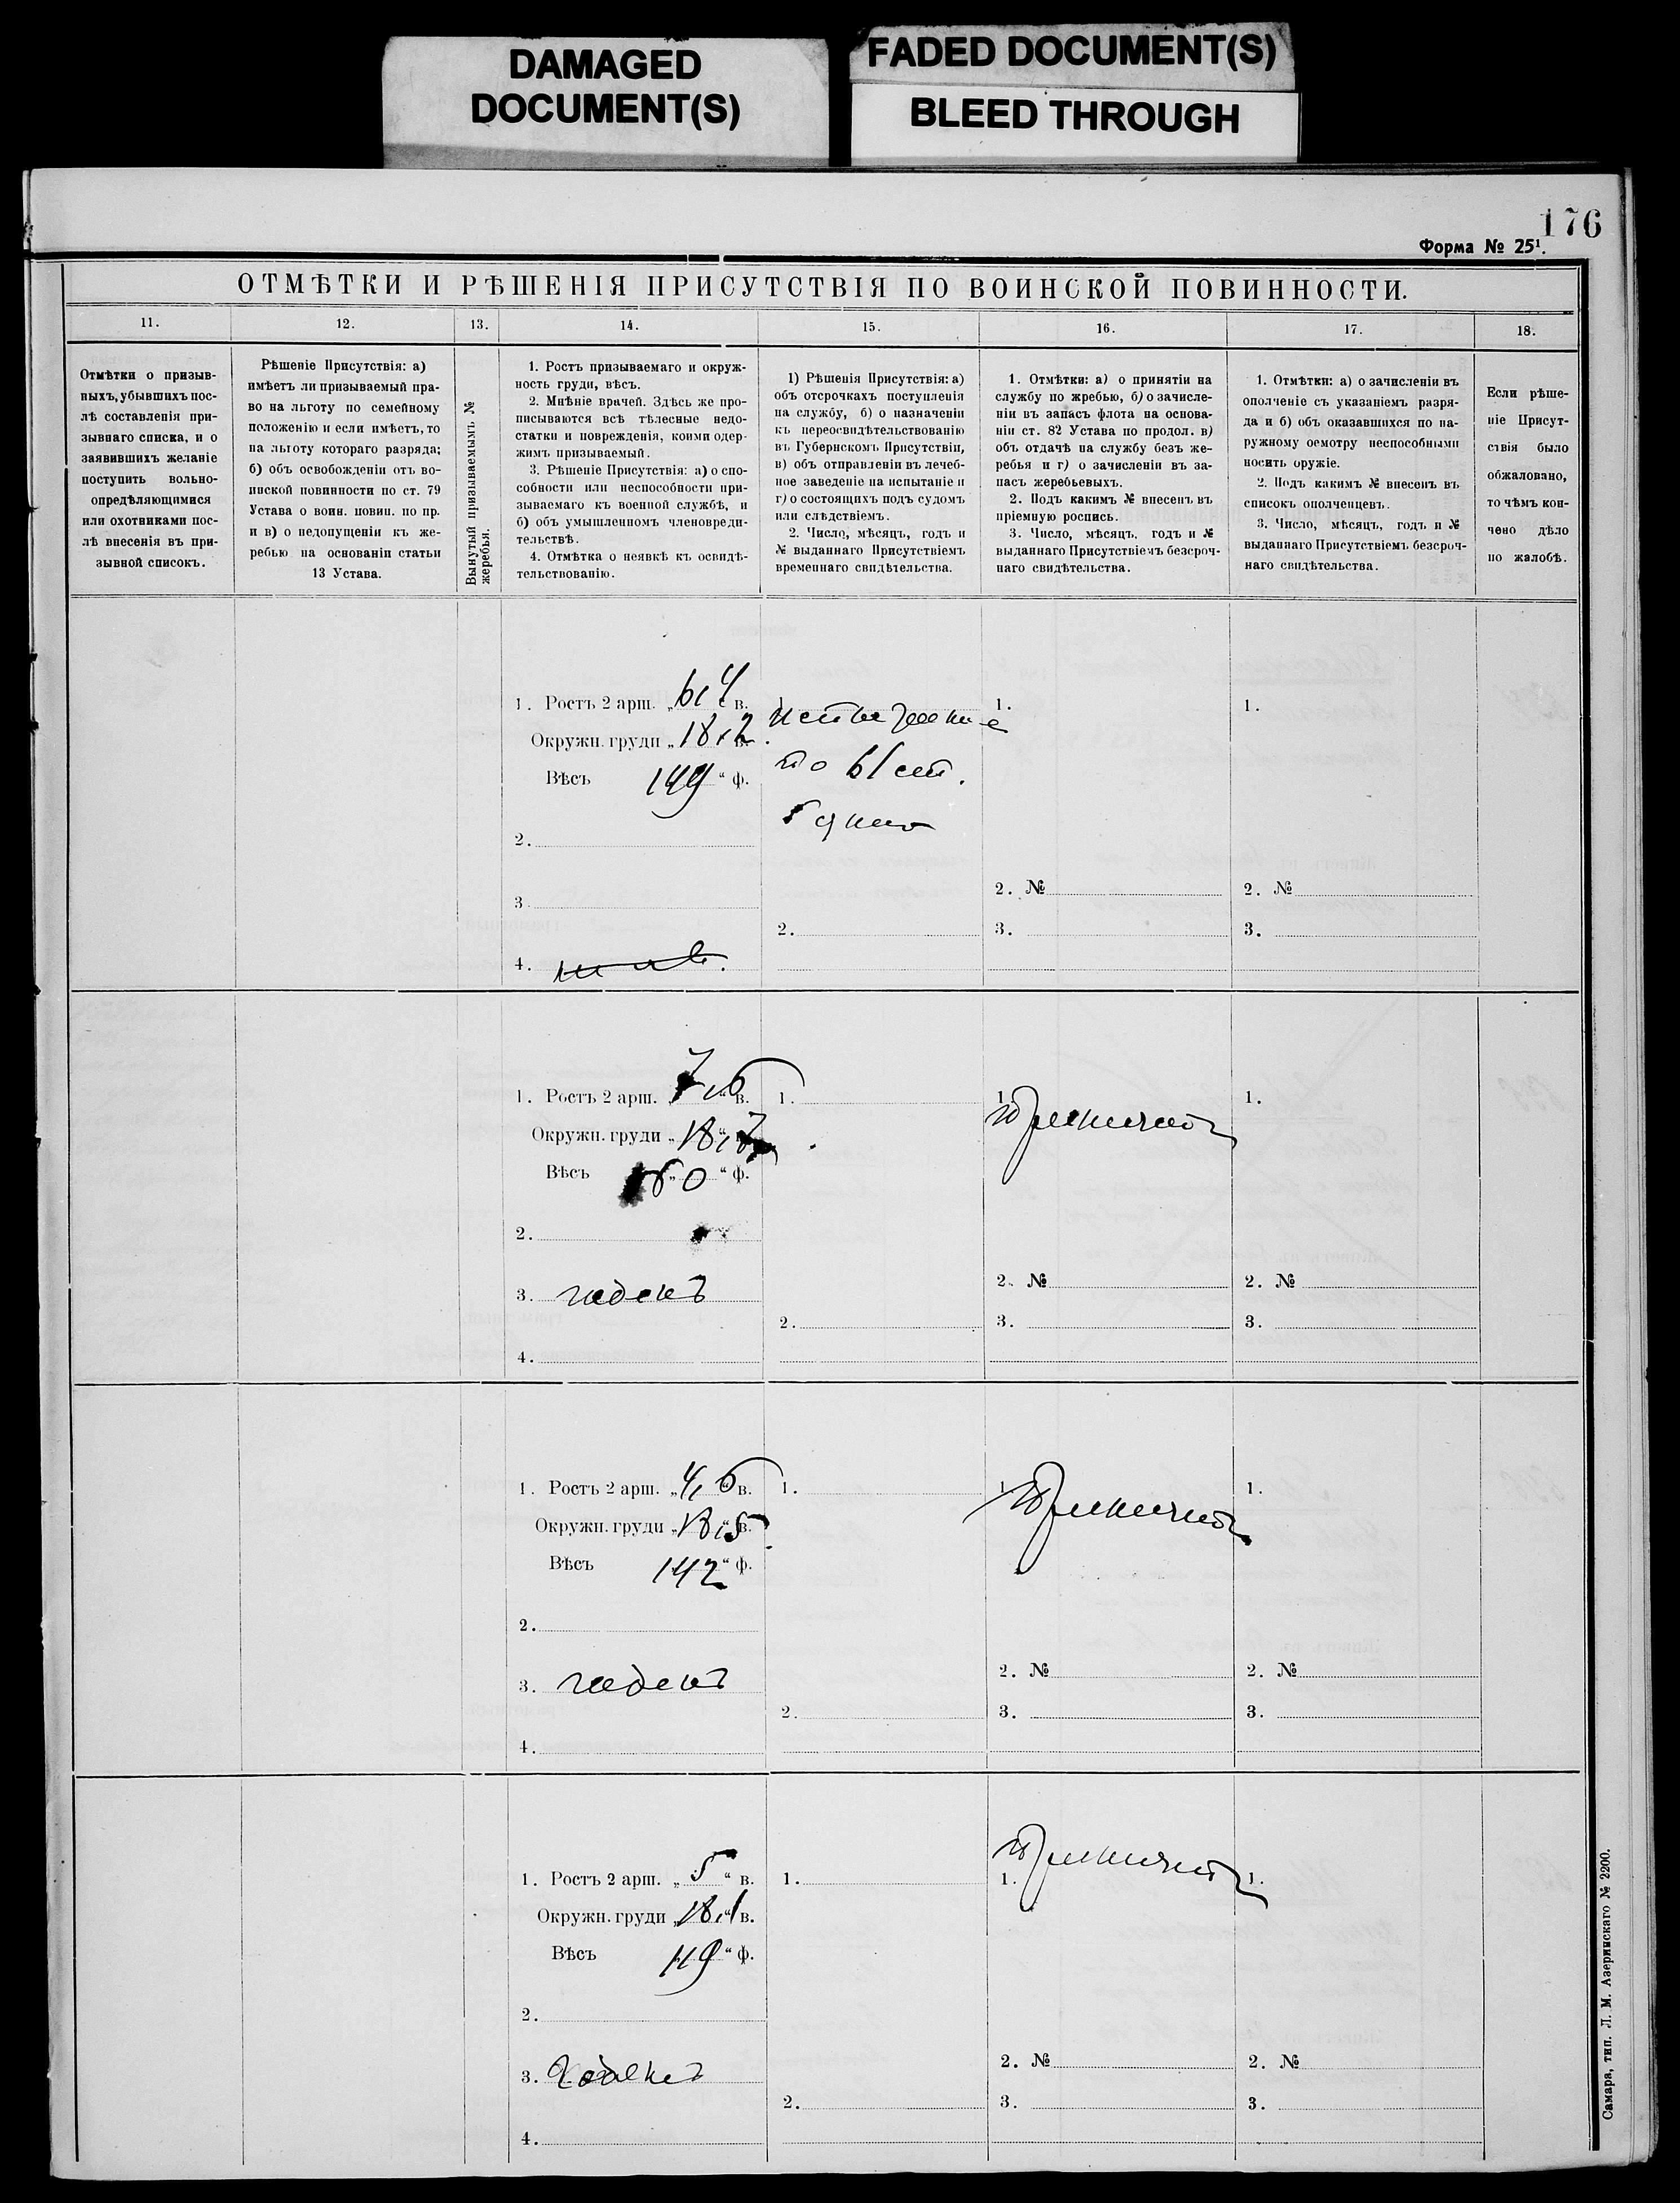 DAMAGED
DOCUMENT(S)
FADED DOCUMENT(S)
BLEED THROUGH
176
Форма № 25¹.
ОТМѢТКИ И РѢШЕНІЯ ПРИСУТСТВІЯ ПО ВОИНСКОЙ ПОВИННОСТИ.
11.
Отмѣтки о призыв-
ныхъ, убывшихъ пос-
лѣ составленія при-
зывнаго списка, и о
заявившихъ желаніе
поступить вольно-
опредѣляющимися
или охотниками пос-
лѣ внесенія въ при-
зывной списокъ.
12.
Рѣшеніе Присутствія: а)
имѣетъ ли призываемый пра-
во на льготу по семейному
положенію и если имѣетъ, то
на льготу котораго разряда;
б) объ освобожденіи отъ во-
инской повинности по ст. 79
Устава о воин. повин. по пр.
и в) о недопущеніи къ же-
ребью на основаніи статьи
13 Устава.
13.
Вынутый призываемымъ №
жеребья.
14.
1. Ростъ призываемаго и окруж-
ность груди, вѣсъ.
2. Мнѣніе врачей. Здѣсь же про-
писываются всѣ тѣлесные недо-
статки и поврежденія, коими одер-
жимъ призываемый.
3. Рѣшеніе Присутствія: а) о спо-
собности или неспособности при-
зываемаго къ военной службѣ, и
б) объ умышленномъ членовреди-
тельствѣ.
4. Отмѣтка о неявкѣ къ освидѣ-
тельствованію.
15.
1) Рѣшенія Присутствія: а)
объ отсрочкахъ поступленія
на службу, б) о назначеніи
къ переосвидѣтельствованію
въ Губернскомъ Присутствіи,
в) объ отправленіи въ лечеб-
ное заведеніе на испытаніе и
г) о состоящихъ подъ судомъ
или слѣдствіемъ.
2. Число, мѣсяцъ, годъ и
№ выданнаго Присутствіемъ
временнаго свидѣтельства.
16.
1. Отмѣтки: а) о принятіи на
службу по жребью, б) о зачисле-
ніи въ запасъ флота на основа-
ніи ст. 82 Устава по продол. в)
объ отдачѣ на службу безъ же-
ребья и г) о зачисленіи въ за-
пасъ жеребьевыхъ.
2. Подъ какимъ № внесенъ въ
пріемную роспись.
3. Число, мѣсяцъ, годъ и №
выданнаго Присутствіемъ безсроч-
наго свидѣтельства.
17.
1. Отмѣтки: а) о зачисленіи въ
ополченіе съ указаніемъ разря-
да и б) объ оказавшихся по на-
ружному осмотру неспособными
носить оружіе.
2. Подъ какимъ № внесенъ въ
списокъ ополченцевъ.
3. Число, мѣсяцъ, годъ и №
выданнаго Присутствіемъ безсроч-
наго свидѣтельства.
18.
Если рѣше-
ніе Присут-
ствія было
обжаловано,
то чѣмъ кон-
чено дѣло
по жалобѣ.
1. Ростъ 2 арш. „ 6,4 “ в.
Окружн. груди „ 18,2 в.
Вѣсъ 149 “ ф.
2.
3.
4.
1.
2.
1.
2. №
3.
1.
2. №
3.
1. Ростъ 2 арш. „ 7,6 “ в.
Окружн. груди „ 18,7 “ в.
Вѣсъ „ “ ф.
2.
3. годенъ
4.
1.
2.
1. принятъ
2. №
3.
1.
2. №
3.
1. Ростъ 2 арш. „ 4,6 “ в.
Окружн. груди „ 18,5 “ в.
Вѣсъ 142 “ ф.
2.
3. годенъ
4.
1.
2.
1. принятъ
2. №
3.
1.
2. №
3.
1. Ростъ 2 арш. „ 5 “ в.
Окружн. груди „ 18,1 “ в.
Вѣсъ 119 “ ф.
2.
3. годенъ
4.
1.
2.
принятъ
1.
2. №
3.
1.
2. №
3.
Самара, тип. Л. М. Азеринскаго № 2200.